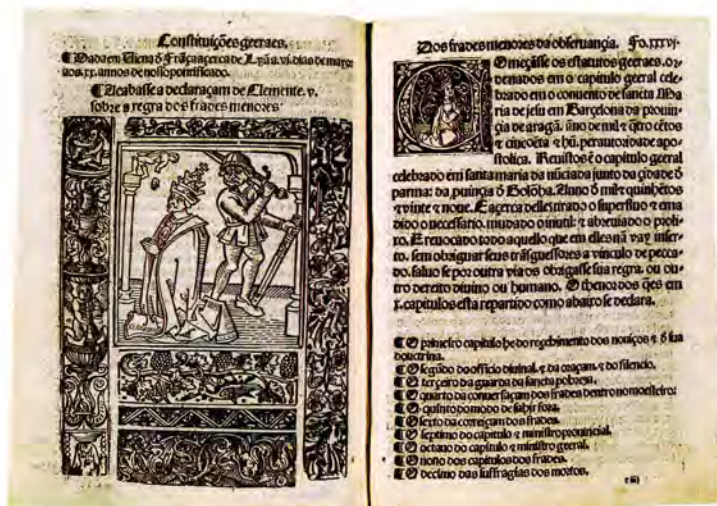 Constituições geeraes.
¶ Dada em Viena d̃ França acerca de Lyã a .vj. dias de mayo:
aos .xx. annos de nosso pontificado.
¶ Acabasse a declaraçam de Clemente. v.
sobre a regra dos frades menores.
Dos frades menores da obseruançia. Fo.xxxvj.
Omeçãsse os estatutos geeraes. or
denados em o capitulo geeral cele
brado em o conuento de sancta Ma
ria de jesu em Barçelona da prouin
çia de aragã. ãno de mil ⁊ q̃tro cẽtos
⁊ cincoẽta ⁊ hũ. per autoridade apo-
stolica. Reuistos ẽ o capitulo geeral
celebrado em santa maria da nũciada junto da çidade d̃
parma: da puinçia d̃ Bolõha. Anno d̃ mil ⁊ quinhẽtos
⁊ vinte ⁊ noue. E açerca delles tirado o superfluo ⁊ ema
dido o necessario. mudado o inutil: ⁊ abreuiado o proli
xo. E reuocado todo aquello que em elles nã vay inser
to. sem obriguar seus trãsguessores a vinculo de pecca-
do. saluo se por outra via os obrigasse sua regra. ou ou-
tro dereito diuino ou humano. O thenor dos q̃es em
x. capitulos esta repartido como abaixo se declara.
¶ O primeiro capitulo he do reçebimento dos nouiços ⁊ d̃ sua
douctrina.
¶ O segũdo do officio diuinal. ⁊ da oraçam. ⁊ do silencio.
¶ O terçeiro da guarda da sancta pobreza.
¶ O quarto da conuersaçam dos frades dentro no moesteiro:
¶ O quinto do modo de sahir fora.
¶ O sexto da correiçam dos frades.
¶ O septimo do capitulo ⁊ ministro prouincial.
¶ O octauo do capitulo ⁊ ministro geeral.
¶ O nono dos capitulos dos frades.
¶ O decimo das suffragias dos mortos.